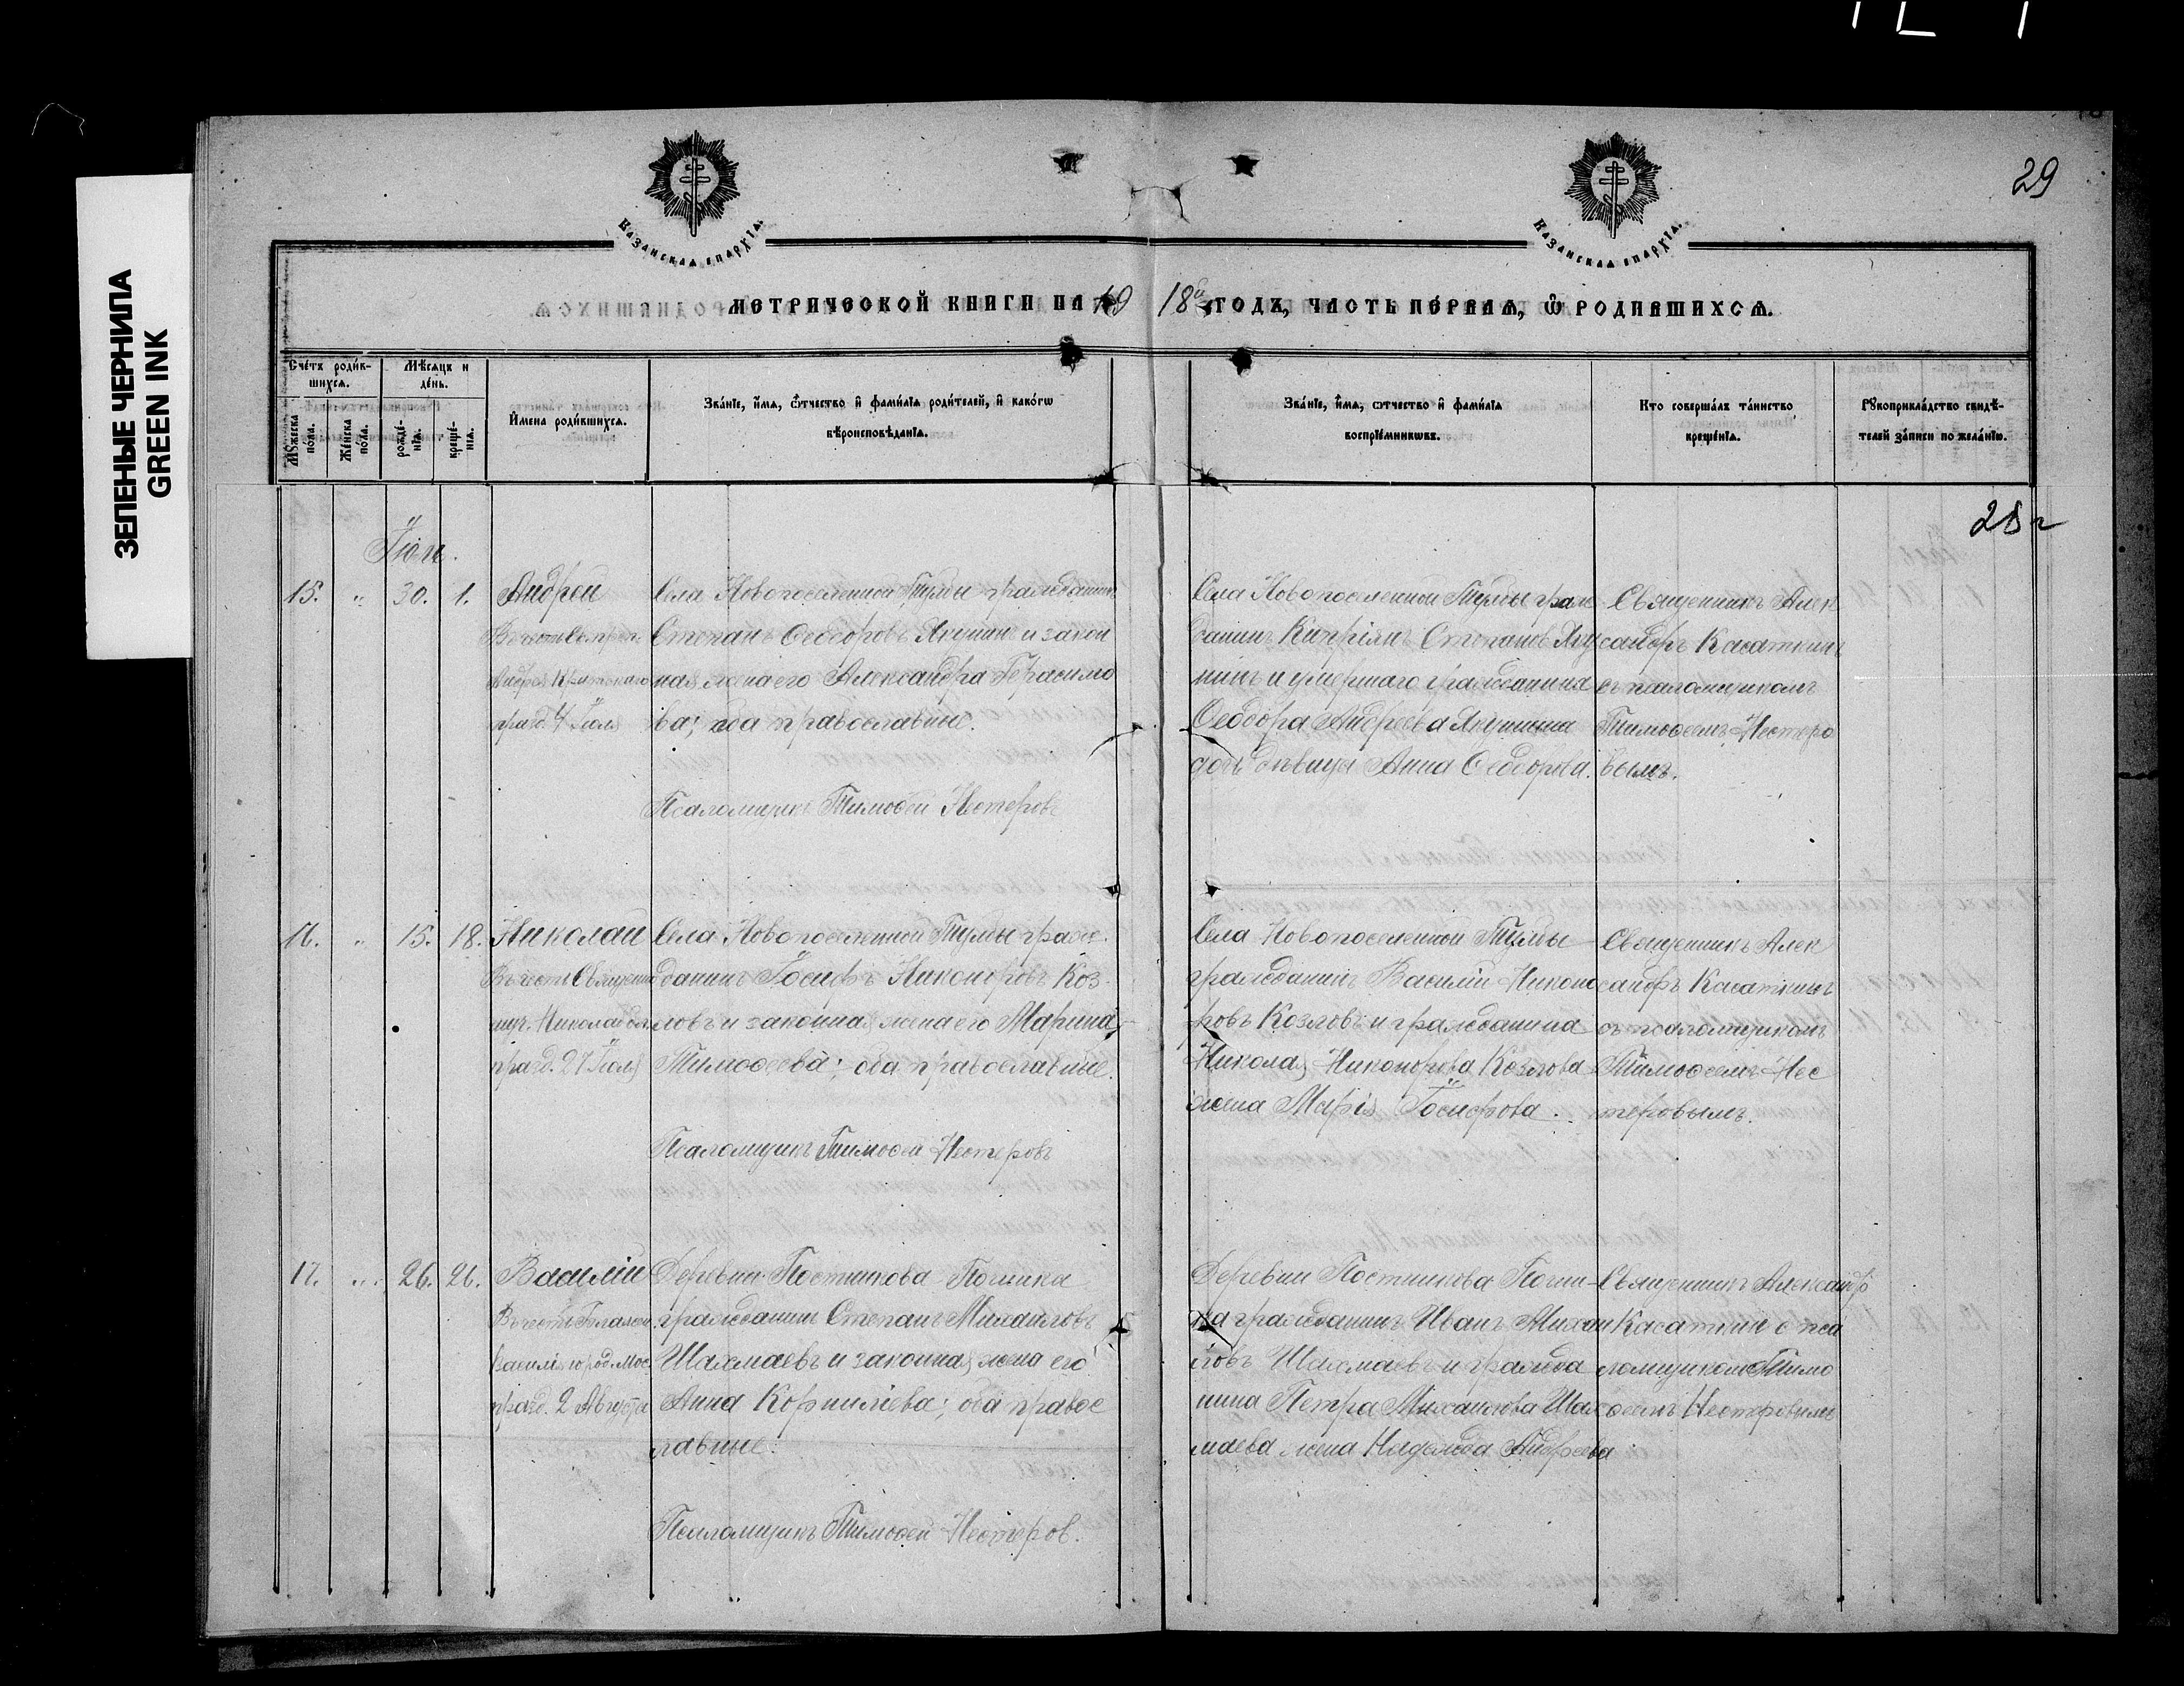 29
Казанская епархїя.
Казанская епархїя.
ЗЕЛЕНЫЕ ЧЕРНИЛА
GREEN INK
МЕТРИЧЕСКОЙ КНИГИ НА 19 18й ГОДЪ, ЧАСТЬ ПЕРВАЯ, Ѿ РОДИВШИХСЯ.
Счетъ родив-
шихся.
Мѣсяцъ и
день.
Мужеска
пола.
Женска
пола.
рожде-
нїя.
креще-
нїя.
Имена родившихся.
Званїе, имя, ѿтчество и фамилїя родителей, и какогѡ
вѣроисповѣданїя.
Званїе, имя, ѿтчество и фамилїя
воспрїемникѡвъ.
Кто совершалъ таинство
крещенїя.
Рукоприкладство свидѣ-
телей записи по желанїю.
Іюль.
15. " 30. 1. Андрей
Въ честь Св. преп.
Андрея Критскаго
празд. 4 Іюля
Села Новопоселенной Тумбы гражданинъ
Степанъ Ѳеодоровъ Якушинъ и закон
ная жена его Александра Герасимо
ва; оба православные.
Псаломщикъ Тимоѳей Нестеровъ
Села Новопоселенной Тумбы граж
данинъ Кипріянъ Степановъ Яку
шинъ и умершаго гражданина
Ѳеодора Андреева Якушина
дочь дѣвица Анна Ѳеодорова.
Священникъ Алек
сандръ Касаткинъ
съ псаломщикомъ
Тимоѳеемъ Нестеро
вымъ.
16. " 15. 18. Николай
Въ честь Священно
муч. Николая
празд. 27 Іюля
Села Новопоселенной Тумбы граж.
данинъ Іосифъ Никоноровъ Коз-
ловъ и законная жена его Марина
Тимоѳеева; оба православные.
Псаломщикъ Тимоѳей Нестеровъ
Села Новопоселенной Тумбы
гражданинъ Василій Никоно
ровъ Козловъ и гражданина
Николая Никонорова Козлова
жена Марія Іосифова.
Священникъ Алек
сандръ Касаткинъ
съ псаломщикомъ
Тимоѳеемъ Нес
теровымъ.
17. " 26. 26. Василій
Въ честь Блажен.
Василія юрод. Мос.
празд. 2 Августа
Деревни Постникова Починка
гражданинъ Степанъ Михаиловъ
Шахмаевъ и законная жена его
Анна Корнилієва; оба правос
лавные.
Псаломщикъ Тимоѳей Нестеров.
Деревни Постникова Почин-
ка гражданинъ Иванъ Михаи
ловъ Шахмаевъ и гражда
нина Петра Михаилова Шах
маева жена Надежда Андреева
Священникъ Александръ
Касаткинъ с пса
ломщикомъ Тимо
ѳеемъ Нестеровымъ